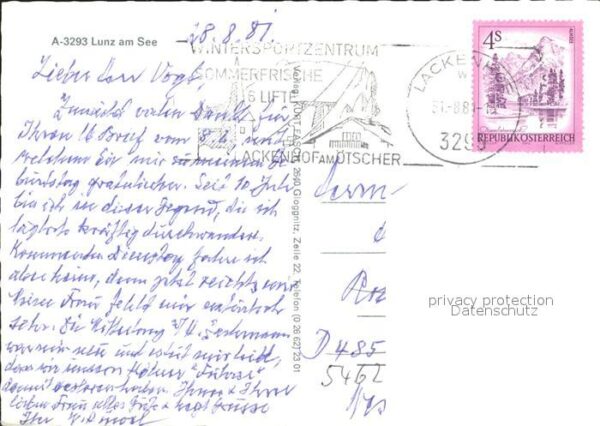 28.8.81.
A-3293 Lunz am See
WINTERSPORTZENTRUM
SOMMERFRISCHE
6 LIFTE
LACKENHOF AM ÖTSCHER
LACKENHOF
31.-8.81
3295
4S
REPUBLIK ÖSTERREICH
Verlag KURT FASOL, 2640 Gloggnitz, Zeile 22, Telefon (0 26 62) 23 01
Lieber Herr Vogt,
Zunächst vielen Dank für
Ihren lb Brief vom 8.8. mit
welchem Sie mir zu meinem Ge-
burtstag gratulieren. Seit 10. Juli
bin ich in dieser Gegend, die ich
tagtäglich kräftig durchwandere.
Kommenden Dienstag fahre ich
also heim, denn jetzt reichts
Meine Frau fehlt mir
sehr. Die Mitteilung
war mir neu und es tut mir leid,
dass wir unseren
damit verloren haben. Ihnen & Ihrer
lieben Frau alles Gute & herzl Grüsse
Ihr
Herrn
D 485
5461
privacy protection
Datenschutz